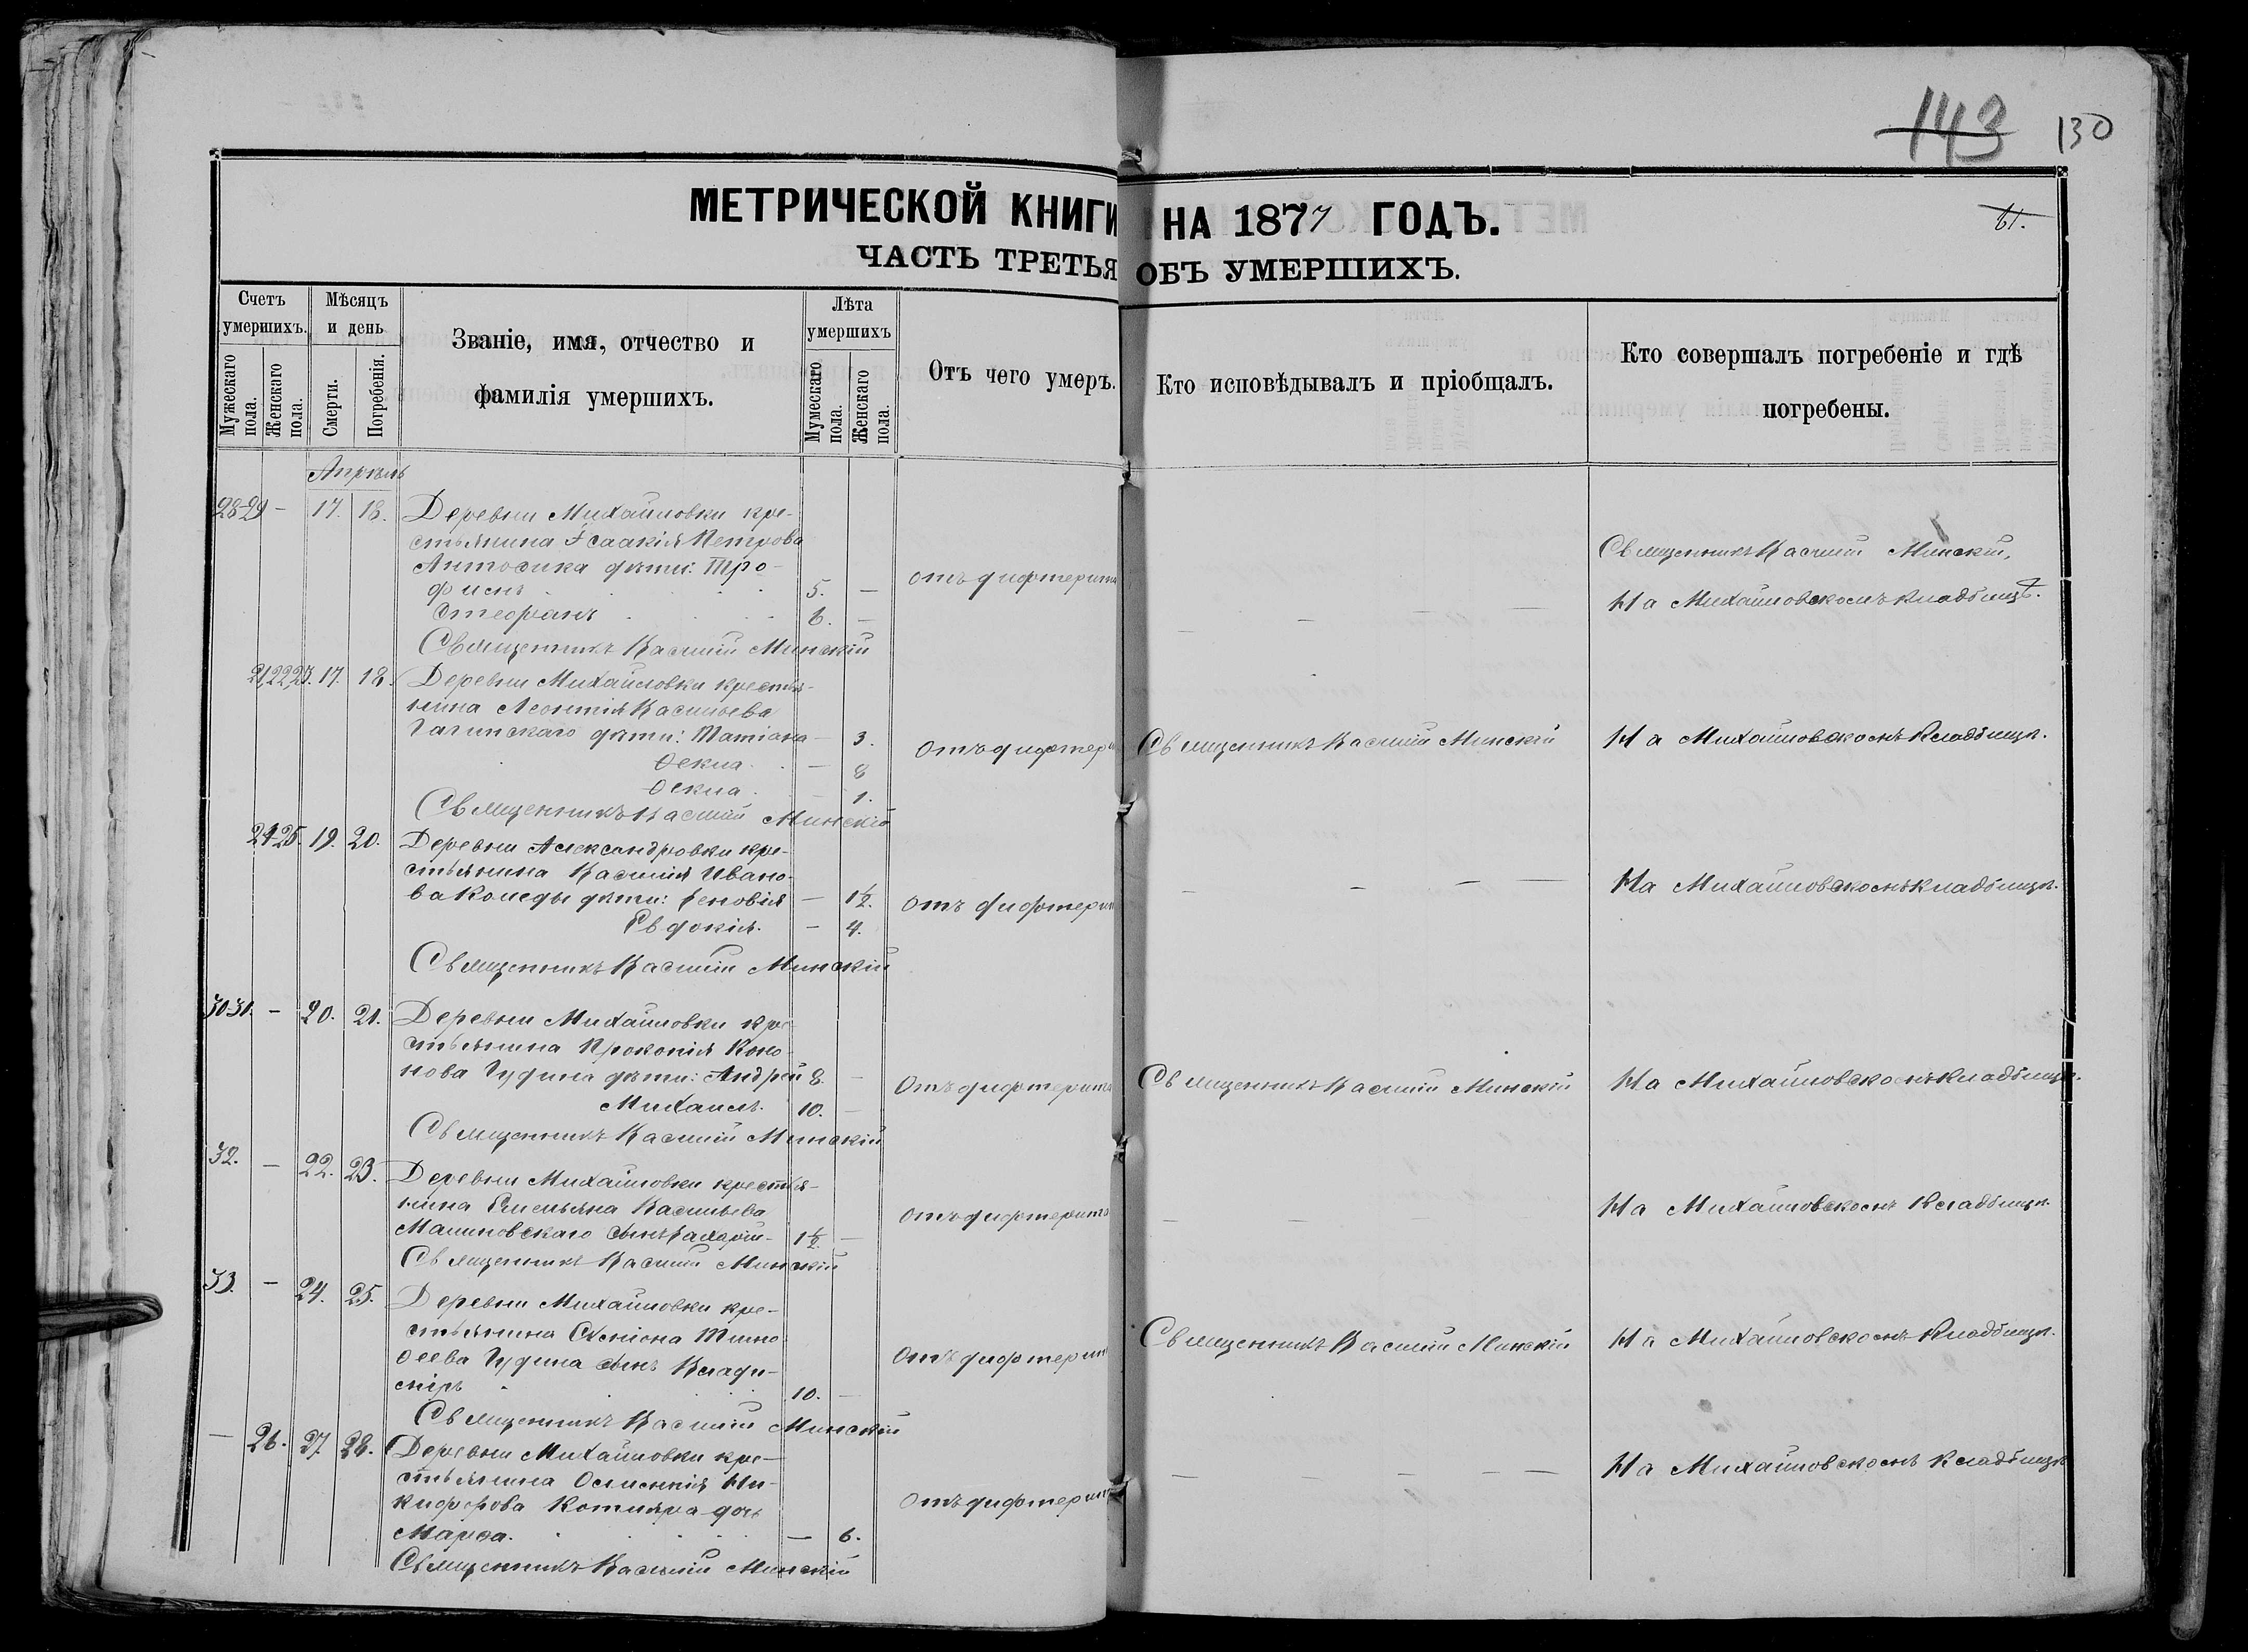 143 130
МЕТРИЧЕСКОЙ КНИГИ НА 1877 ГОДЪ.
61.
ЧАСТЬ ТРЕТЬЯ ОБЪ УМЕРШИХЪ.
Счетъ умершихъ.
Мужескаго пола.
Женскаго пола.
Мѣсяцъ и день
Смерти.
Погребенія.
Званіе, имя, отчество и
фамилія умершихъ.
Лѣта умершихъ
Мужескаго пола.
Женскаго пола.
Отъ чего умеръ.
Кто исповѣдывалъ и пріобщалъ.
Кто совершалъ погребеніе и гдѣ
погребены.
Апрѣль
28-29 — 17. 18. Деревни Михайловки кре-
стьянина Ісаакія Петрова
Антосика дѣти: Тро-
фимъ 5. — отъ дифтерита
Стефанъ 6. —
Священникъ Василій Минскій,
На Михайловскомъ кладбищѣ.
Священникъ Василій Минскій
21,22,23. 17. 18. Деревни Михайловки крестья-
нина Леонтія Васильева
дѣти: Татіана — 3. отъ дифтери
Ѳекла — 8
Ѳекла — 1.
Священникъ Василій Минскій
На Михайловскомъ кладбищѣ.
Священникъ Василій Минскій
24-25. 19. 20. Деревни Александровки кре-
стьянина Василія Ивано-
ва Коледы дѣти: Зеновія — 1½. отъ дифтери
Евдокія. — 4.
На Михайловскомъ кладбищѣ.
Священникъ Василій Минскій
30-31. — 20. 21. Деревни Михайловки кре-
стьянина Прокопія Коно-
нова Гудима дѣти: Андрей 8. — Отъ дифтерита
Михаилъ. 10. —
Священникъ Василій Минскій
На Михайловскомъ кладбищѣ.
Священникъ Василій Минскій
32. — 22. 23. Деревни Михайловки крестья-
нина Емельяна Васильева
Малиновскаго сынъ Захарій 1½. — отъ дифтерита
На Михайловскомъ кладбищѣ.
Священникъ Василій Минскій
33. — 24. 25. Деревни Михайловки кре-
стьянина Симеона Тимо-
ѳеева Гудима сынъ Влади-
міръ 10. — Отъ дифтерит
Священникъ Василій Минскій
На Михайловскомъ кладбищѣ.
Священникъ Василій Минскій
— 26. 27. 28. Деревни Михайловки кре-
стьянина Ни-
кифорова Котляра дочь
Марѳа. — 6. отъ дифтерит
На Михайловскомъ кладбищѣ
Священникъ Василій Минскій